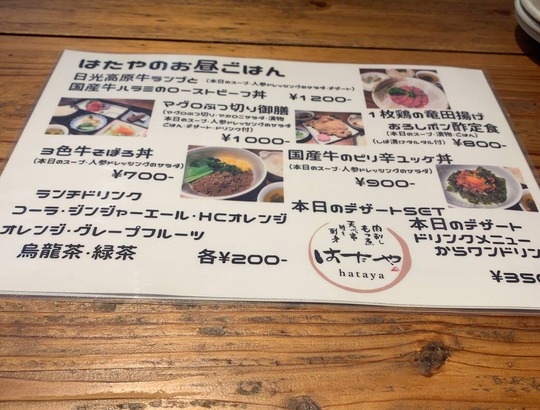 はたやのお昼ごはん
日光高原牛ランプと(本日のスープ・人参ドレッシングのサラダ・デザート)
国産牛ハラミのローストビーフ丼
¥1200-
マグロぶつ切り御膳
(マグロぶつ切り・マカロニサラダ・漬物
本日のスープ・人参ドレッシングのサラダ
ごはん・デザート・ドリンク付)
¥1000-
1枚鶏の竜田揚げ
おろしポン酢定食
(本日のスープ・ごはん・漬物)
(しば漬けタルタル付) ¥800-
3色牛そぼろ丼
(本日のスープ・人参ドレッシングのサラダ)
¥700-
国産牛のピリ辛ユッケ丼
(本日のスープ・人参ドレッシングのサラダ)
¥900-
ランチドリンク
コーラ・ジンジャーエール・HCオレンジ
オレンジ・グレープフルーツ
烏龍茶・緑茶
各¥200-
本日のデザートSET
本日のデザート
ドリンクメニュー
からワンドリン
¥350
肉刺し
もつ煮
天ぷら
はたや
hataya